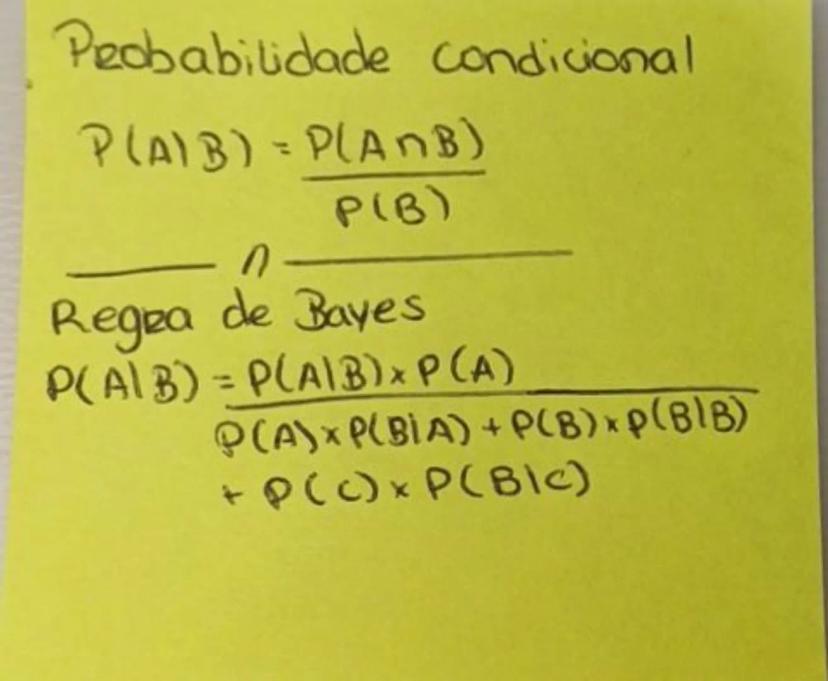 Probabilidade condicional
P(A\B) = P(A∩B)
P(B)
n
Regra de Bayes
P(A\B) = P(A\B) x P(A)
P(A) x P(B\A) + P(B) x P(B\B)
+ P(C) x P(B\C)